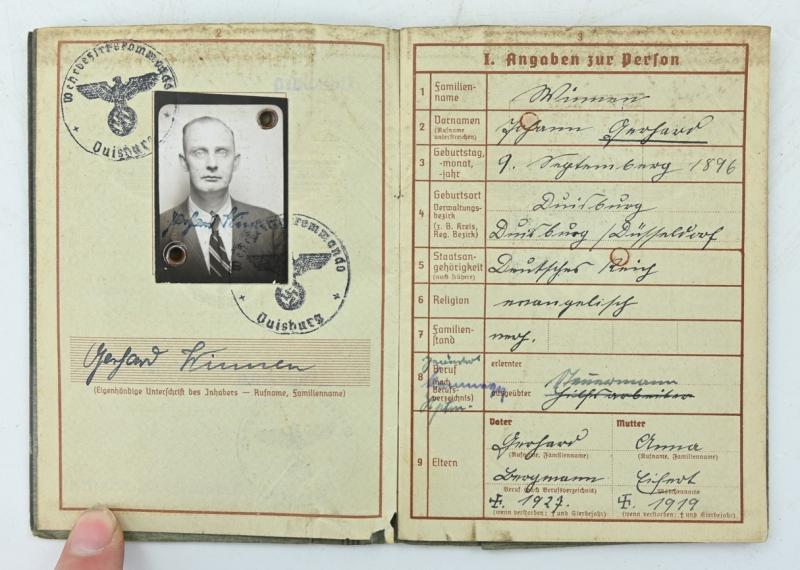 2
Wehrbezirkskommando
Duisburg
Wehrbezirkskommando
Duisburg
Gerhard Winnen
(Eigenhändige Unterschrift des Inhabers — Rufname, Familienname)
3
I. Angaben zur Person
1 Familien-
name
Winnen
2 Vornamen
(Rufname
unterstreichen)
Johann Gerhard
3 Geburtstag,
-monat,
-jahr
9. September 1896
4 Geburtsort
Verwaltungs-
bezirk
(z. B. Kreis,
Reg. Bezirk)
Duisburg
Duisburg / Düsseldorf
5 Staatsan-
gehörigkeit
(auch frühere)
Deutsches Reich
6 Religion
evangelisch
7 Familien-
stand
verh.
8 Beruf
(nach
Berufs-
verzeichnis)
erlernter
Steuermann
ausgeübter
Hilfsarbeiter
9 Eltern
Vater
Gerhard
(Rufname, Familienname)
Bergmann
Beruf (nach Berufsverzeichnis)
1927.
(wenn verstorben: † und Sterbejahr)
Mutter
Anna
(Rufname, Familienname)
Eifert
Mädchenname
1919
(wenn verstorben: † und Sterbejahr)